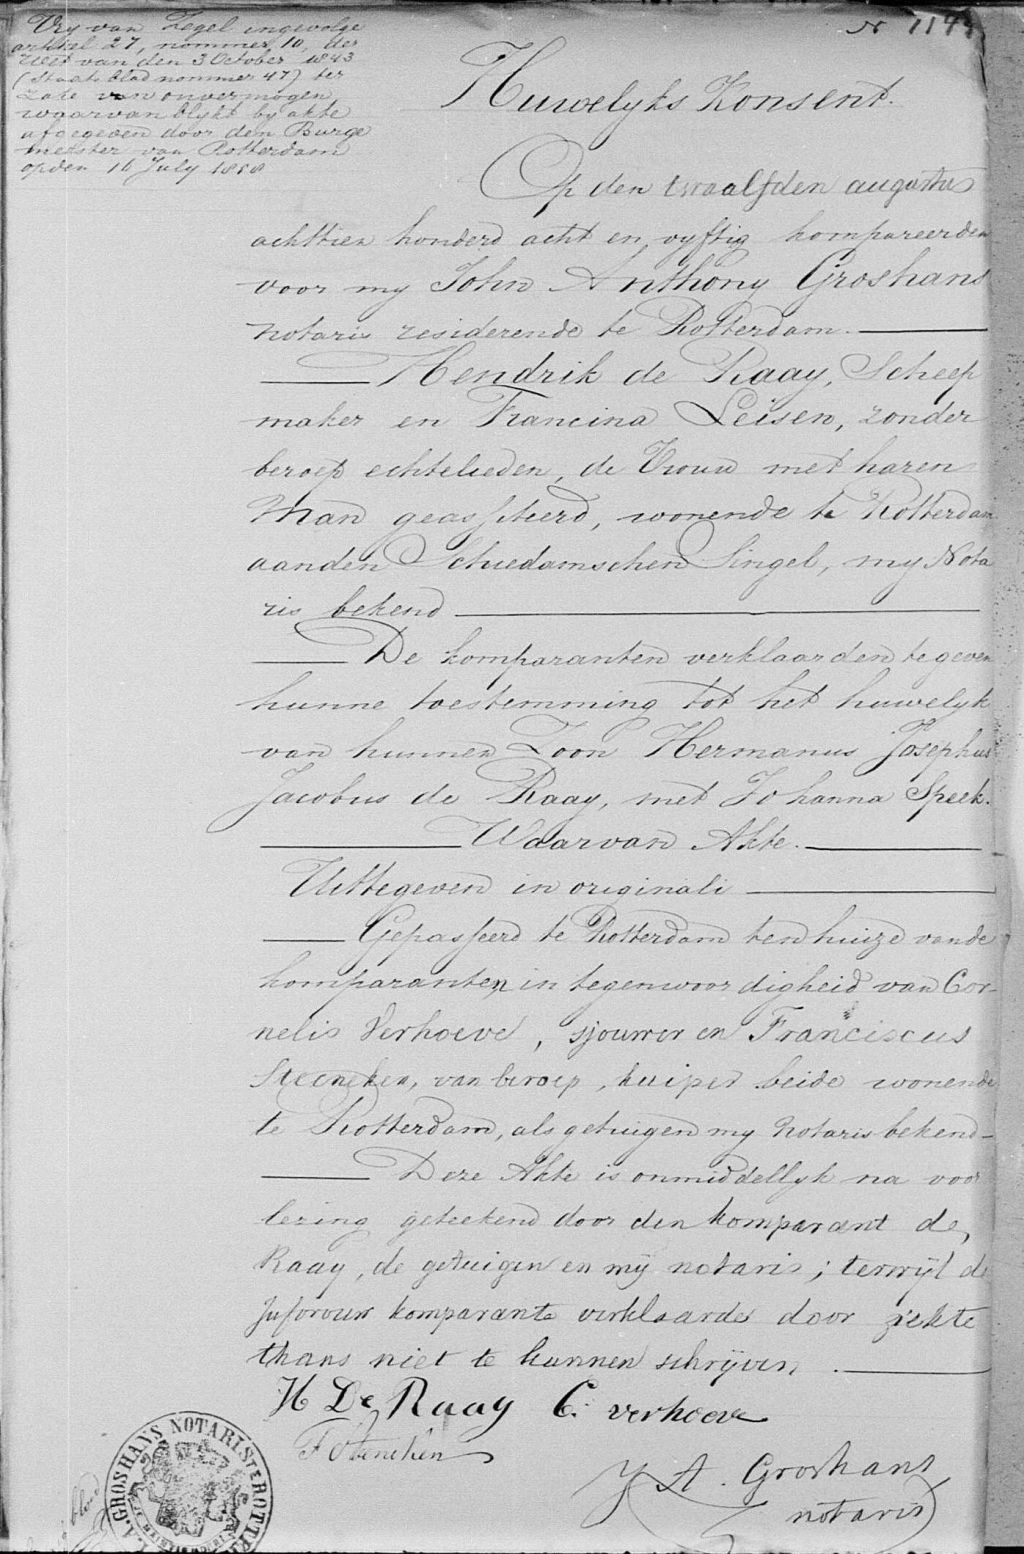 Vry van Zegel ingevolge
artikel 27, nommer 10, der
Wet van den 3 October 1843
(Staatsblad nommer 47) ter
Zake van onvermogen
waarvan blykt by akte
afgegeven door den Burge
meester van Rotterdam
op den 16 July 1858
N 114
Huwelyks Konsent.
Op den twaalfden augustus
achttien honderd acht en vyftig kompareerden
voor my John Anthony Groshans
notaris residerende te Rotterdam.
Hendrik de Raay, Scheep
maker en Francina Leisen, zonder
beroep echtelieden, de Vrouw met haren
Man geassisteerd, wonende te Rotterdam
aan den Schiedamschen Singel, my Nota
ris bekend
De komparanten verklaarden te geven
hunne toestemming tot het huwelyk
van hunnen Zoon Hermanus Josephus
Jacobus de Raay, met Johanna Speek.
Waarvan Akte.
Uittegeven in originali
Gepasseerd te Rotterdam ten huize van de
komparanten in tegenwoordigheid van Cor-
nelis Verhoeve, sjouwer en Franciscus
Steeneken, van beroep, kuiper beide wonende
te Rotterdam, als getuigen my notaris bekend-
Deze Akte is onmiddellyk na voor
lezing geteekend door den komparant de
Raay, de getuigen en mij notaris; terwijl de
Jufvrouw komparante verklaarde door ziekte
thans niet te kunnen schrijven
H De Raay C. verhoeve
F Steneken
J A. Groshans
notaris
J.A. GROSHANS NOTARIS TE ROTTER